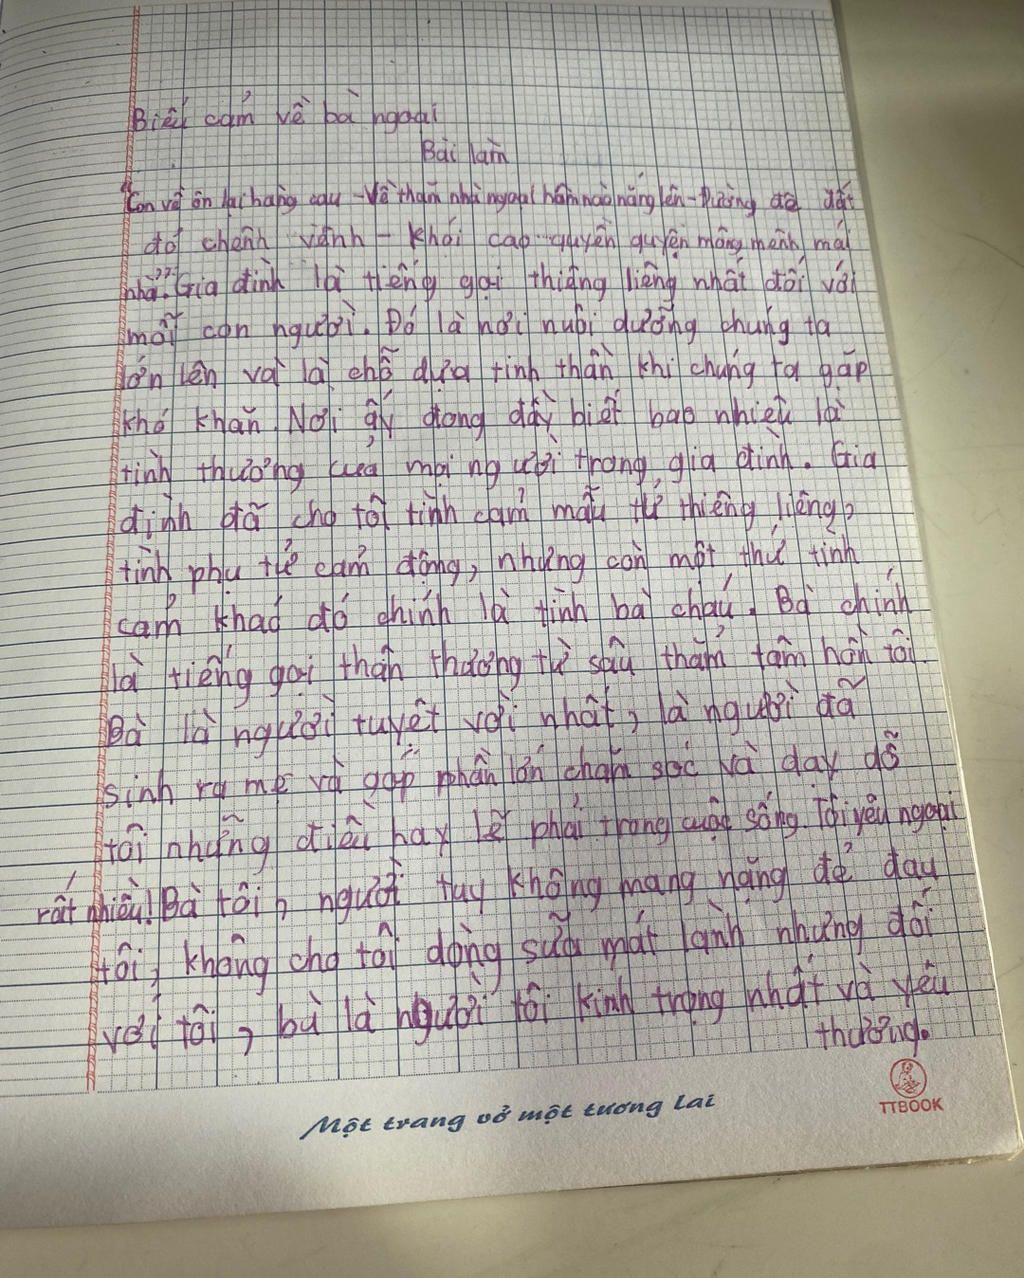 Biểu cảm về bà ngoại
Bài làm
"Con về ôn lại hàng cau - Về thăm nhà ngoại hôm nào nắng lên - Đường đê đất
đỏ chênh vênh - Khói cao quyền quyện mông mênh mái
nhà". Gia đình là tiếng gọi thiêng liêng nhất đối với
mỗi con người. Đó là nơi nuôi dưỡng chúng ta
lớn lên và là chỗ dựa tinh thần khi chúng ta gặp
khó khăn. Nơi ấy đong đầy biết bao nhiêu là
tình thương của mọi người trong gia đình. Gia
đình đã cho tôi tình cảm mẫu tử thiêng liêng,
tình phụ tử cảm động, nhưng còn một thứ tình
cảm khác đó chính là tình bà cháu. Bà chính
là tiếng gọi thân thương từ sâu thẳm tâm hồn tôi.
Bà là người tuyệt vời nhất, là người đã
sinh ra mẹ và góp phần lớn chăm sóc và dạy dỗ
tôi những điều hay lẽ phải trong cuộc sống. Tôi yêu ngoại
rất nhiều! Bà tôi, người tuy không mang nặng đẻ đau
tôi, không cho tôi dòng sữa mát lành nhưng đối
với tôi, bà là người tôi kính trọng nhất và yêu
thương.
Một trang vở một tương lai
TTBOOK